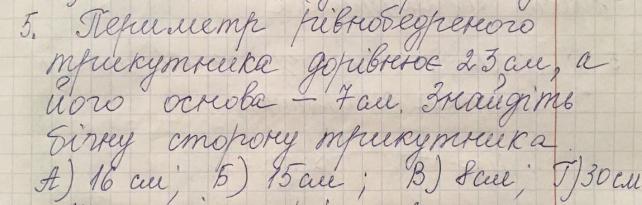 5. Периметр рівнобедреного
трикутника дорівнює 23 см, а
його основа – 7 см. Знайдіть
бічну сторону трикутника.
А) 16 см; Б) 15 см; В) 8 см; Г) 30 см